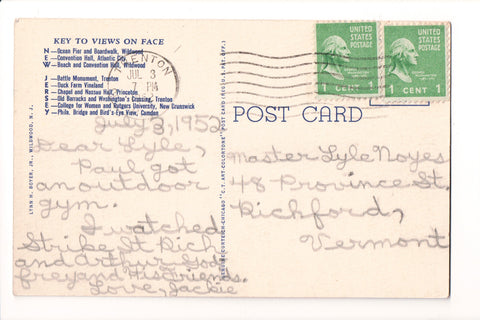 KEY TO VIEWS ON FACE
N—Ocean Pier and Boardwalk, Wildwood
E—Convention Hall, Atlantic City
W—Beach and Convention Hall, Wildwood
J—Battle Monument, Trenton
E—Duck Farm Vineland
R—Chapel and Nassau Hall, Princeton
S—Old Barracks and Washington's Crossing, Trenton
E—College for Women and Rutgers University, New Brunswick
Y—Phila. Bridge and Bird's-Eye View, Camden
TRENTON
JUL 3
7 PM
UNITED STATES POSTAGE
1 CENT 1
UNITED STATES POSTAGE
1 CENT 1
POST CARD
July 3, 1952
Dear Lyle,
Paul got
an outdoor
gym.
I watched
Strike It Rich
and Arthur God-
frey and His Friends.
Love, Jackie
Master Lyle Noyes
48 Province St.
Richford,
Vermont
LYNN H. BOYER, JR., WILDWOOD, N. J.
GENUINE CURTEICH-CHICAGO "C. T. ART-COLORTONE" POST CARD (REG. U. S. PAT. OFF.)